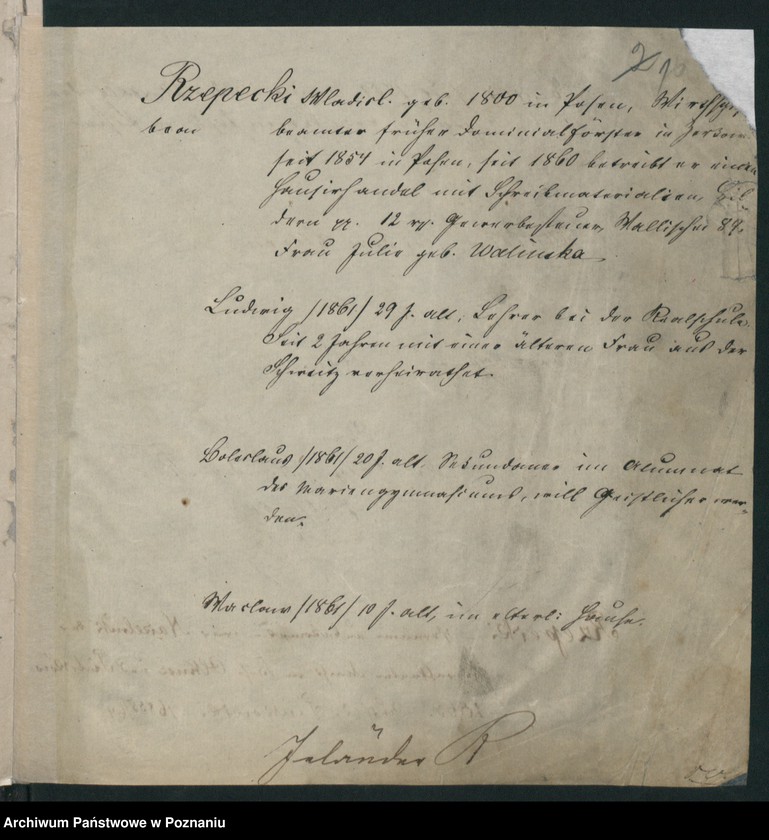 Rzepecki Wladisl. geb. 1800 in Posen, Wirthsch.
beamter früher Dominialförster in
seit 1854 in Posen, seit 1860 betreibt er einen
Hausirhandel mit Schreibmaterialien, Bil-
dern pp. 12 rp. Gewerbesteuer, Wallischei 89.
Frau Julie geb. Walinska
Ludwig /1861/ 29 J. alt, Lehrer bei der Realschule.
Seit 2 Jahren mit einer älteren Frau aus der
Schweitz verheirathet.
Boleslaus /1861/ 20 J. alt, Sekundaner im Alumnat
des Mariengymnasiums, will Geistlicher wer-
den.
Waclaw /1861/ 10 J. alt, im elterl: Hause.
Archiwum Państwowe w Poznaniu